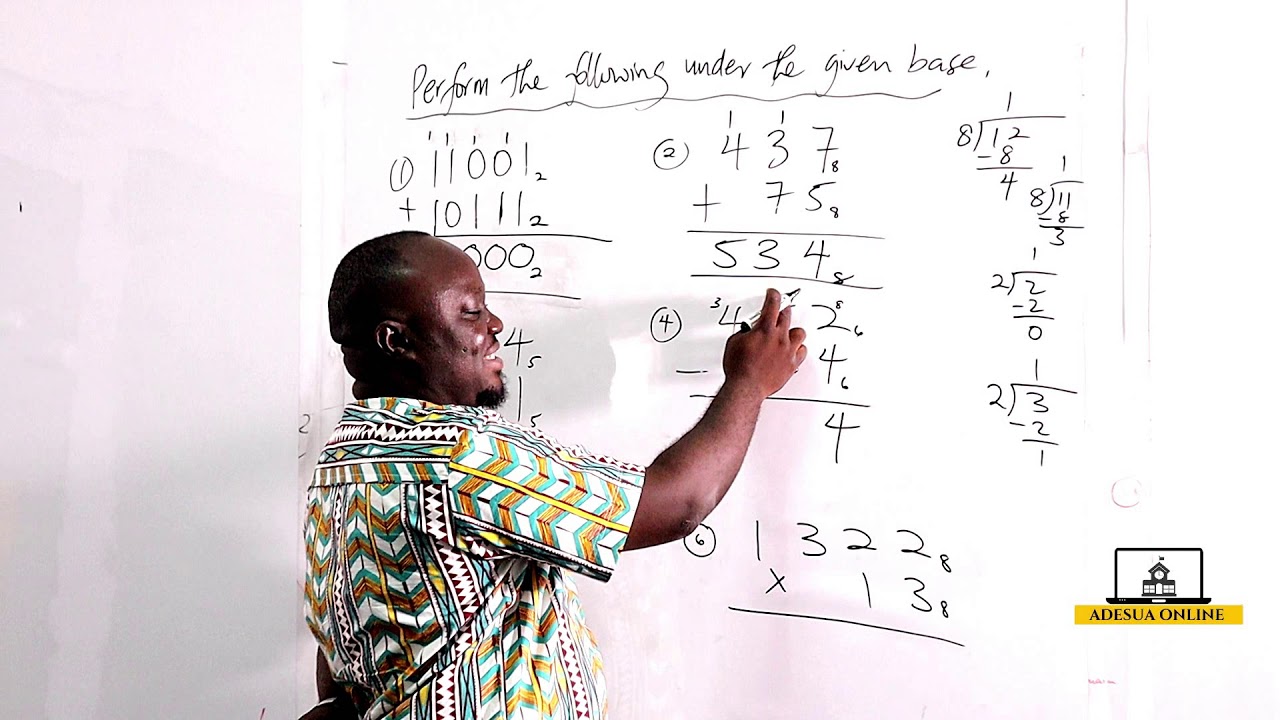 Perform the following under the given base.
① 11001₂
+ 10111₂
000₂
② 437₈
+ 75₈
534₈
4₅
1₅
④ ³4 2⁸₆
- 4₆
4
⑥ 1322₈
× 13₈
1
8)12
-8
4
1
8)11
-8
3
1
2)2
-2
0
1
2)3
-2
1
ADESUA ONLINE